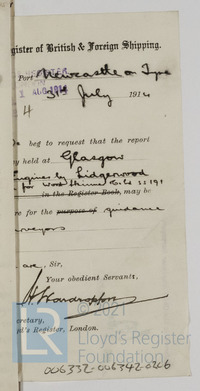 egister of British & Foreign Shipping.
Port Newcastle on Tyne
1 AUG 1914
31st July 1914
4
beg to request that the report
y held at Glasgow
Engines by Lidgerwood
for
in the Register Book, may be
re for the purpose of guidance
rveyors
are, Sir,
Your obedient Servant,
ecretary,
yd's Register, London.
© 2021
Lloyd's Register
Foundation
006332-006342-0266